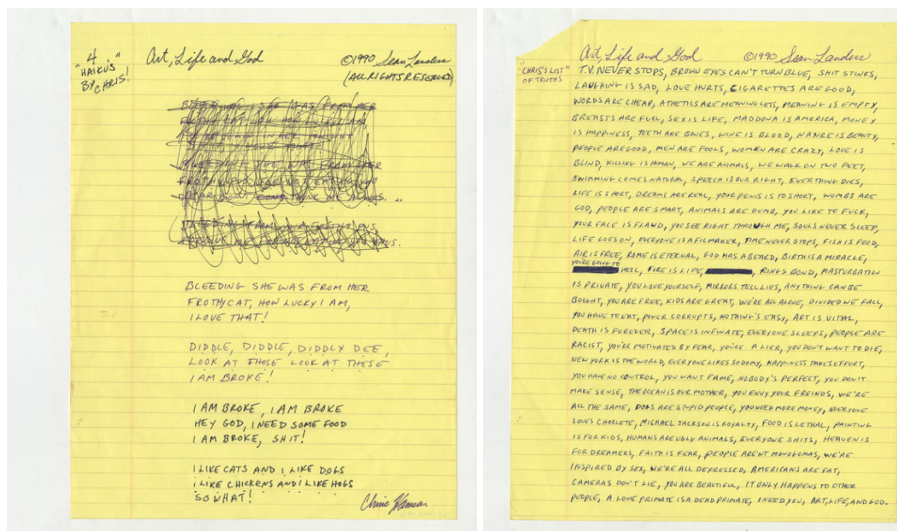 4
"HAIKU'S"
BY CHRIS!
Art, Life and God ©1990 Sean Landers
(ALL RIGHTS RESERVED)
BLEEDING SHE WAS FROM HER
FROTHY CAT, HOW LUCKY I AM,
I LOVE THAT!
DIDDLE, DIDDLE, DIDDLY DEE,
LOOK AT THOSE LOOK AT THESE
I AM BROKE!
I AM BROKE, I AM BROKE
HEY GOD, I NEED SOME FOOD
I AM BROKE, SHIT!
I LIKE CATS AND I LIKE DOGS
I LIKE CHICKENS AND I LIKE HOGS
SO WHAT!
Chris Hamson
Art, Life and God ©1990 Sean Landers
"CHRIS'S LIST
OF TRUTHS"
T.V. NEVER STOPS, BROWN EYES CAN'T TURN BLUE, SHIT STINKS,
LAUGHING IS SAD, LOVE HURTS, CIGARETTES ARE GOOD,
WORDS ARE CHEAP, ATHETICS ARE MEANINGLESS, MEANING IS EMPTY,
BREASTS ARE FULL, SEX IS LIFE, MADDONA IS AMERICA, MONEY
IS HAPPINESS, TEETH ARE BONES, WINE IS BLOOD, NATURE IS BEAUTY,
PEOPLE ARE GOOD, MEN ARE FOOLS, WOMEN ARE CRAZY, LOVE IS
BLIND, KILLING IS HUMAN, WE ARE ANIMALS, WE WALK ON TWO FEET,
SWIMMING COMES NATURAL, SPEECH IS OUR RIGHT, EVERTHING DIES,
LIFE IS SHORT, DREAMS ARE REAL, YOUR PENIS IS TO SHORT, WOMBS ARE
GOD, PEOPLE ARE SMART, ANIMALS ARE DUMB, YOU LIKE TO FUCK,
YOUR FACE IS FLAWD, YOU SEE RIGHT THROUGH ME, SOULS NEVER SLEEP,
LIFE GOES ON, EVERYONE IS A FILMAKER, TIME NEVER STOPS, FISH IS FOOD,
AIR IS FREE, ROME IS ETERNAL, GOD HAS A BEARD, BIRTH IS A MIRACLE,
YOU'RE GOING TO
HELL, FIRE IS LIFE, RINGS BOND, MASTURBATION
IS PRIVATE, YOU LOVE YOURSELF, MIRRORS TELL LIES, ANYTHING CAN BE
BOUGHT, YOU ARE FREE, KIDS ARE GREAT, WE'RE ALL ALONE, DIVIDED WE FALL,
YOU HAVE TO EAT, POWER CORRUPTS, NOTHING'S EASY, ART IS VITAL,
DEATH IS FOREVER, SPACE IS INFINATE, EVERYONE SLEEPS, PEOPLE ARE
RACIST, YOU'RE MOTIVATED BY FEAR, YOU'RE A LIER, YOU DON'T WANT TO DIE,
NEW YORK IS THE WORLD, EVERYONE LIKES SODOMY, HAPPINESS TAKES EFFORT,
YOU HAVE NO CONTROL, YOU WANT FAME, NOBODY'S PERFECT, YOU DON'T
MAKE SENSE, THE OCEAN IS OUR MOTHER, YOU ENVY YOUR FREINDS, WE'RE
ALL THE SAME, DOGS ARE STUPID PEOPLE, YOU NEED MORE MONEY, EVERYONE
LOVES CHOCLETE, MICHAEL JACKSON IS ROYALTY, FOOD IS LETHAL, PAINTING
IS FOR KIDS, HUMANS ARE UGLY ANIMALS, EVERYONE SHITS, HEAVEN IS
FOR DREAMERS, FAITH IS FEAR, PEOPLE AREN'T MONOGOMAS, WE'RE
INSPIRED BY SEX, WE'RE ALL DEPRESSED, AMERICANS ARE FAT,
CAMERAS DON'T LIE, YOU ARE BEAUTIFUL, IT ONLY HAPPENS TO OTHER
PEOPLE, A LONE PRIMATE IS A DEAD PRIMATE, I NEED YOU, ART, LIFE, AND GOD.